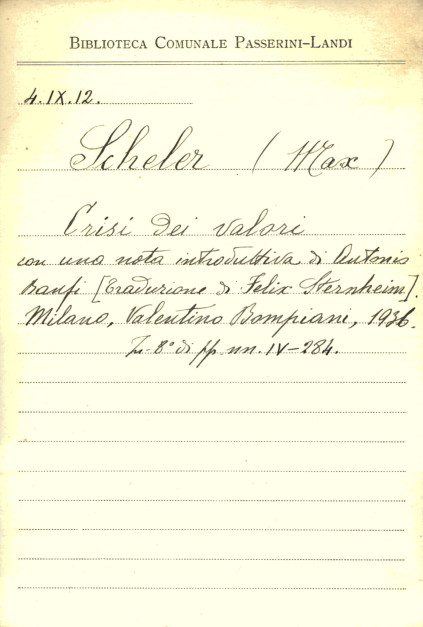 BIBLIOTECA COMUNALE PASSERINI-LANDI
4.IX.12.
Scheler (Max)
Crisi dei valori
con una nota introduttiva di Antonio
Banfi [Traduzione di Felix Sternheim].
Milano, Valentino Bompiani, 1936.
In-8° di pp nn. IV-284.